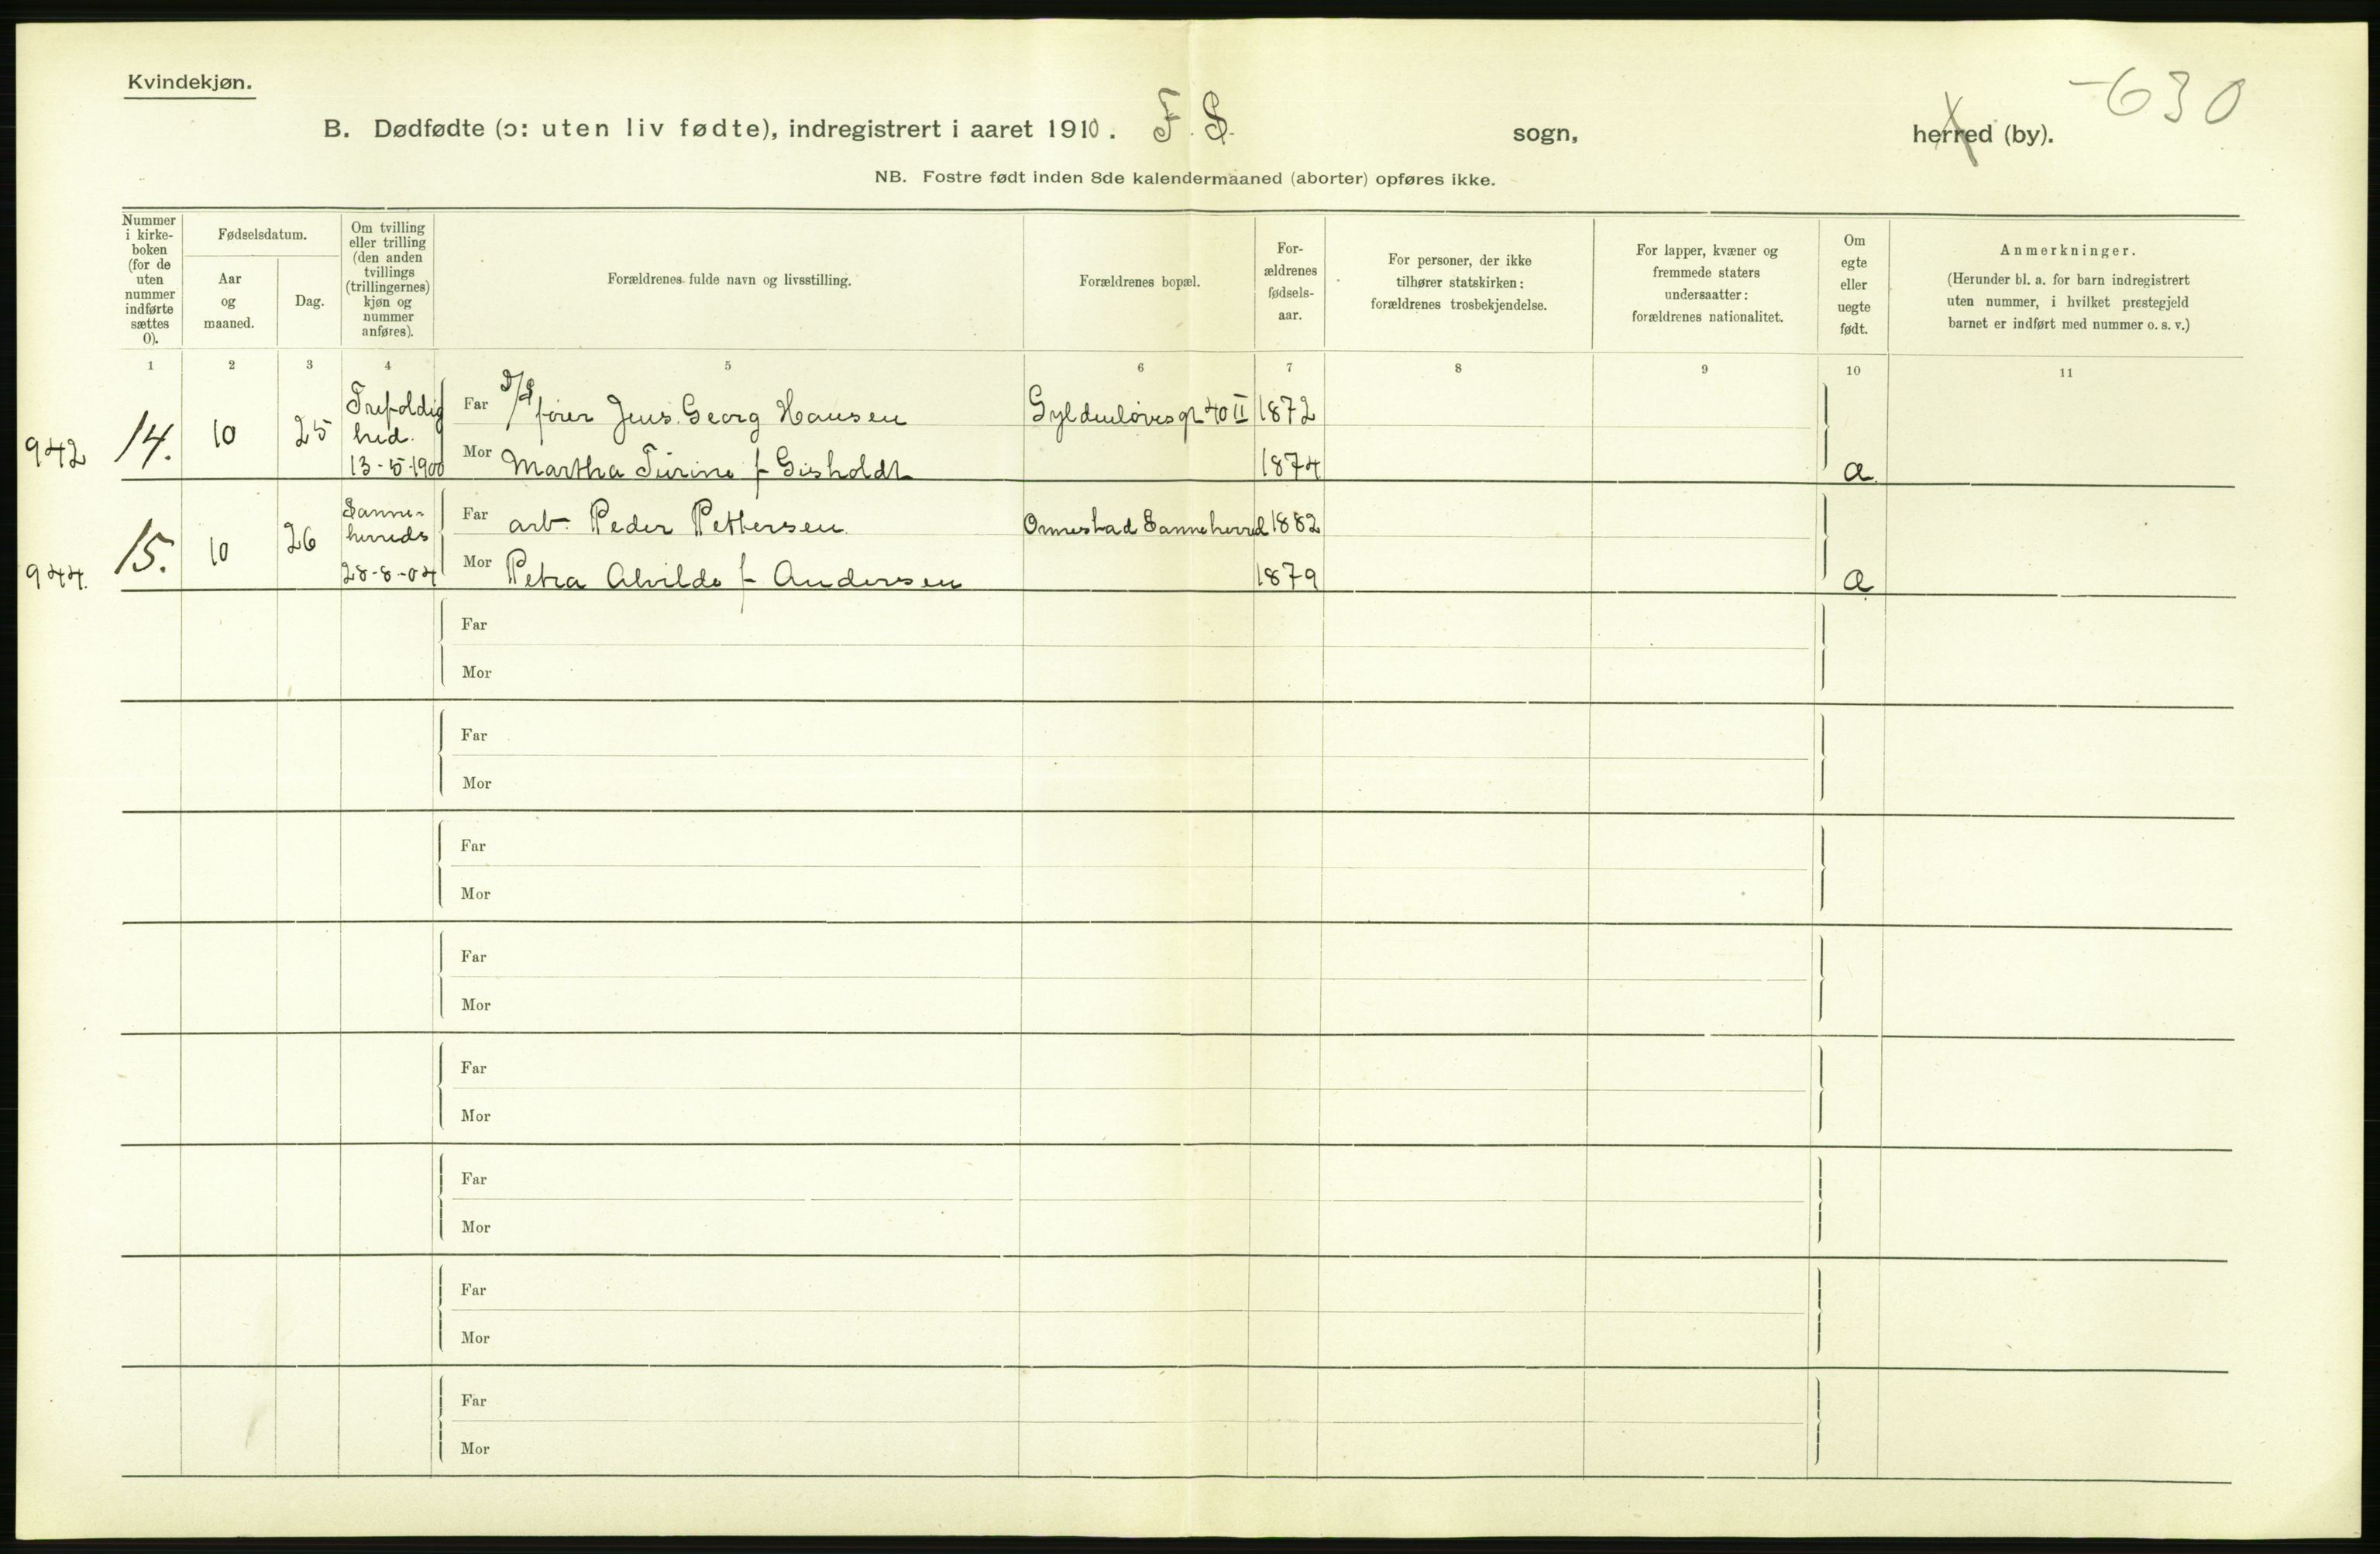 Kvindekjøn.
-630
B. Dødfødte (ɔ: uten liv fødte), indregistrert i aaret 1910. F. S. sogn, herred (by).
NB. Fostre født inden 8de kalendermaaned (aborter) opføres ikke.
Nummer i kirke-boken (for de uten nummer indførte sættes 0).
Fødselsdatum.
Aar og maaned.
Dag.
Om tvilling eller trilling (den anden tvillings (trillingernes) kjøn og nummer anføres).
Forældrenes fulde navn og livsstilling.
Forældrenes bopæl.
For-ældrenes fødsels-aar.
For personer, der ikke tilhører statskirken: forældrenes trosbekjendelse.
For lapper, kvæner og fremmede staters undersaatter: forældrenes nationalitet.
Om egte eller uegte født.
Anmerkninger.
(Herunder bl. a. for barn indregistrert uten nummer, i hvilket prestegjeld barnet er indført med nummer o. s. v.)
1 2 3 4 5 6 7 8 9 10 11
942 14. 10 25 Trefoldighed. 13-5-1900 Far fører Jens Georg Hansen Gyldenløvesgt 40 II 1872
Mor Martha f. Gisholdt 1874 a
944. 15. 10 26 Sanneherreds 28-8-04 Far arb. Peder Pettersen Ormestad Sanneherred 1882
Mor Petra Alvilde f. Andersen 1879 a
Far
Mor
Far
Mor
Far
Mor
Far
Mor
Far
Mor
Far
Mor
Far
Mor
Far
Mor